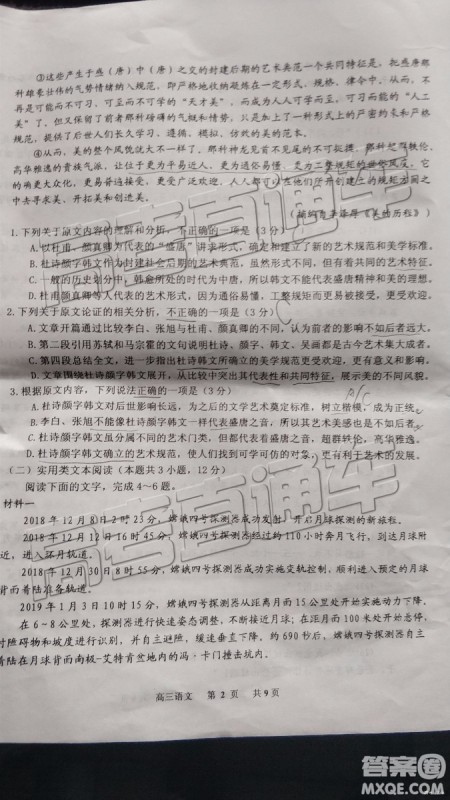 ③这些产生于盛(唐)中(唐)之交的封建后期的艺术典范一个共同特征是,把盛唐那
科雄豪壮伟的气势情绪纳入规范,即严格地收纳凝炼在一定形式、规格、律令中。从而,不
再是可能而不可习、可至而不可学的“天才美”,而成为人人可学而至、可习而能的“人工
美”了。但又保留了前者那种磅礴的气势和情势,只是加上了一种形式上的严密约束和
规范,提供了后世人们长久学习、遵循、摹拟、仿效的美的范本。
④从而,美的整个风貌就大不一样了。那种神龙见首不见尾的不可捉摸,那种超群轶伦、
高华雅逸的贵族气派,让位于更为平易近人、更为通俗易懂、更为工整规矩的世俗风度。它
的确更大众化,更易普遍接受,更受广泛欢迎。人人都可以在他们所开创建立的规矩方圆之
中去寻求美、开拓美和创造美。
(摘编自李泽厚《美的历程》)
1.下列关于原文内容的理解和分析,不正确的一项是(3分)
A.以杜甫、颜真卿为代表的“盛唐”讲求形式,确定和建立了新的艺术规范和美学标准。
B.杜诗颜字韩文作为封建社会后期的艺术典范,形成了自己的艺术风格和共同特征。
C.从历史划分上讲,韩愈所处的时代为中唐,所以韩文不能代表盛唐精神和美的理想。
D.杜甫、颜真卿等人代表的艺术形式,因为通俗易懂,工整规矩而更受世人广泛欢迎。
2.下列关于原文论证的相关分析,不正确的一项是(3分)
A.文章开篇通过比较李白、张旭与杜甫、颜真卿的不同,引出前者不如后者远大。
B.第二段引用苏轼和马宗霍的文句说明杜诗、颜字、韩文、吴画都是古今艺术集大成者。
C.第四段总结全文,进一步指出杜诗韩文所确立的美学规范更受世俗欢迎,影响更大。
D.文章围绕杜诗颜字韩文展开,从比较中突出其代表性和共同特征,展示美的不同风貌。
3.根据原文内容,下列说法正确的一项是(3分)
A.杜诗颜字韩文对后世影响长远,为之后的文学艺术奠定标准、树立楷模,成为正统。
B.李白、张旭不能像杜诗颜字韩文那样代表盛唐,因为他们的作品缺少形式规范。
C.杜诗颜字韩文虽分属不同艺术类型,但都具有盛唐的气势情绪,超群轶伦,高华雅逸。
D.杜诗颜字韩文讲求艺术规范,使人们找到可学可仿的对象,更有利于艺术的发展。
(二)实用类文本阅读(本题共3小题,12分)
阅读下面的文字,完成4~6题。
材料一
2018年12月8日2时23分,嫦娥四号探测器成功发射,开启月球探测的新旅程。
2018年12月12日16时45分,嫦娥四号探测器经过约110小时奔月飞行,到达月球附
近,进入环月轨道。
2018年12月30日8时55分,嫦娥四号探测器成功实施变轨控制,顺利进入预定的月球
背面着陆准备轨道。
2019年1月3日10时15分,嫦娥四号探测器从距离月面15公里处开始实施动力下降。
在6~8公里处,探测器进行快速姿态调整,不断接近月球;在距月面100米处开始悬停,
对障碍物和坡度进行识别,并自主避障,缓速垂直下降。约690秒后,嫦娥四号探测器自主
着陆在月球背面南极-艾特肯盆地内的冯·卡门撞击坑内。
高三语文 第2页 共9页
高考直通车
高考直通车
答案圈
MXQE.COM